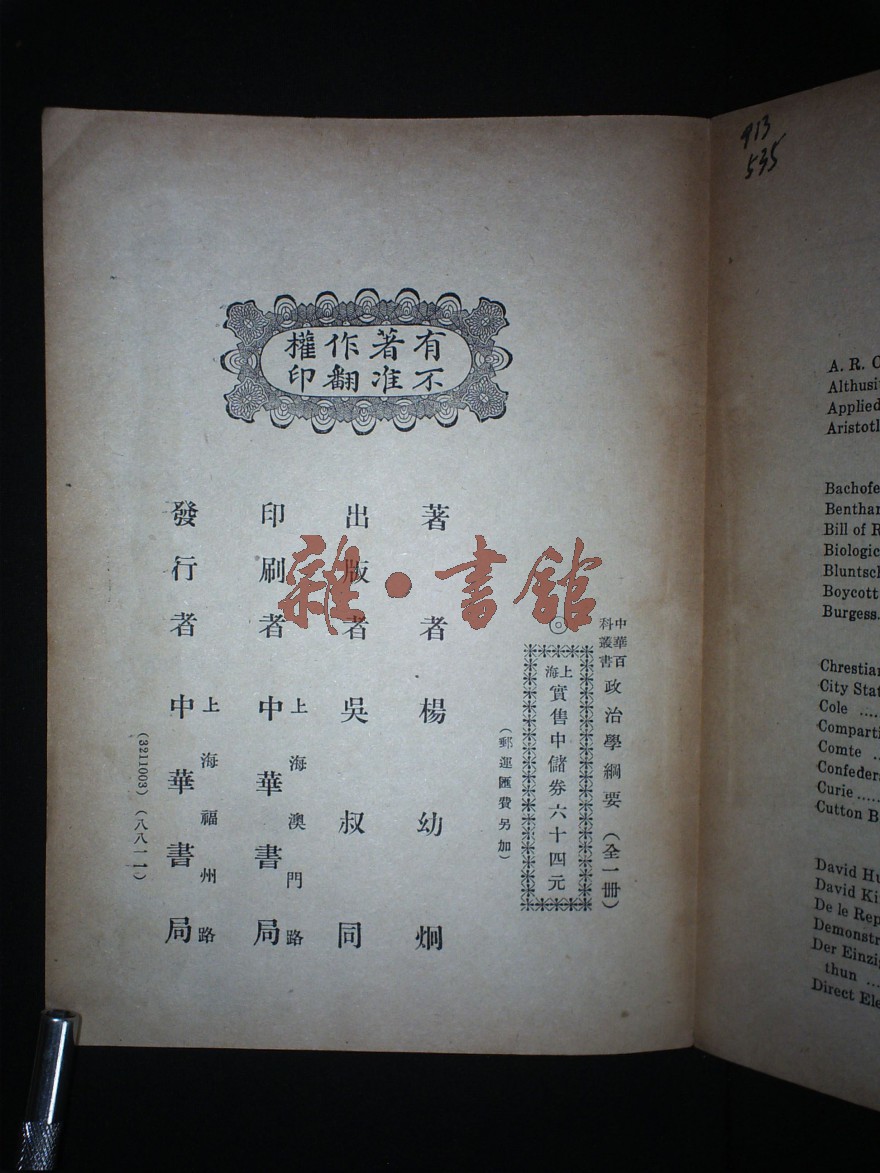 有著作權
不准翻印
中華百
科叢書
政治學綱要（全一冊）
◎
上海
實售中儲券六十四元
（郵運匯費另加）
著者楊幼炯
出版者吳叔同
上海澳門路
印刷者中華書局
上海福州路
發行者中華書局
（3211003）（八八一一）
雜·書館
913
535
A. R. C
Althusi
Applied
Aristotl
Bachofe
Benthan
Bill of R
Biologic
Bluntsch
Boycott
Burgess.
Chrestian
City Stat
Cole ....
Comparti
Comte ..
Confeder
Curie.....
Cutton B
David Hu
David Ki
De le Rep
Demonstr
Der Einzig
thun ...
Direct Ele